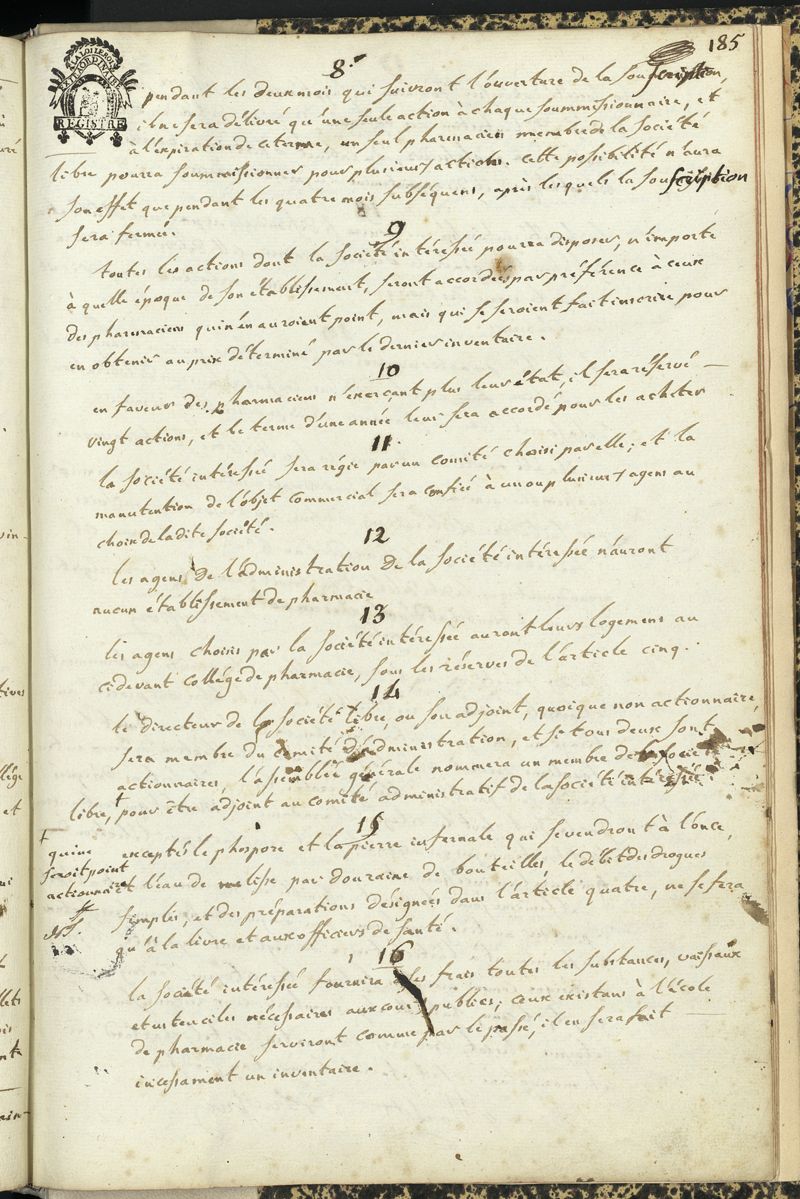 185
LA LOI LE ROI
EXTRAORDINAIRE
REGISTRE
8.
pendant les deux mois qui suivront l'ouverture de la souscription,
il ne sera délivré qu'une seule action à chaque soummissionnaire, et
à l'expiration de ce terme, un seul pharmacien membre de la Société
libre pourra soummissionner pour plusieurs actions. cette possibilité n'aura
son effet que pendant les quatre mois subséquens, après lesquels la souscription
sera fermée.
9
toutes les actions dont la société intéressée pourra disposer, n'importe
à quelle époque de son établissement, seront accordées par préférence à ceux
des pharmaciens qui n'en auroient point, mais qui se seroient fait inscrire pour
en obtenir au prix déterminé par le dernier inventaire.
10
en faveur des pharmaciens n'exerçant plus leur état, il sera réservé
vingt actions, et le terme d'une année leur sera accordé pour les acheter
11.
la société intéressée sera régie par un comité choisi par elle; et la
manutention de l'objet commercial sera confiée à un ou plusieurs agens au
choix de la dite société.
12
les agens de l'administration de la société intéressée n'auront
aucun établissement de pharmacie
13
les agens choisis par la société intéressée auront leurs logemens au
cidevant collége de pharmacie, sous les réserves de l'article cinq.
14
le directeur de la société libre, ou son adjoint, quoique non actionnaire,
sera membre du comité d'administration, et si tous deux sont
actionnaires, l'assemblée générale nommera un membre de la société
libre, + pour être adjoint au comité administratif de la société intéressée.
+
qui ne
seroit point
actionnaire
15
exceptés le phospore et la pierre infernale qui se vendront à l'once,
et l'eau de melisse par douzaine de bouteilles, le débit des drogues
simples, et des préparations désignées dans l'article quatre, ne se fera
qu'à la livre et aux officiers de santé.
16
la société intéressée fournira à ses frais toutes les substances, vaisseaux
et ustenciles nécessaires aux cours publics; ceux existans à l'école
de pharmacie serviront comme par le passé, il en sera fait
incessament un inventaire.